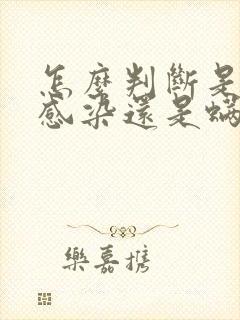 怎麼判斷是
感染還是螨
樂嘉攜